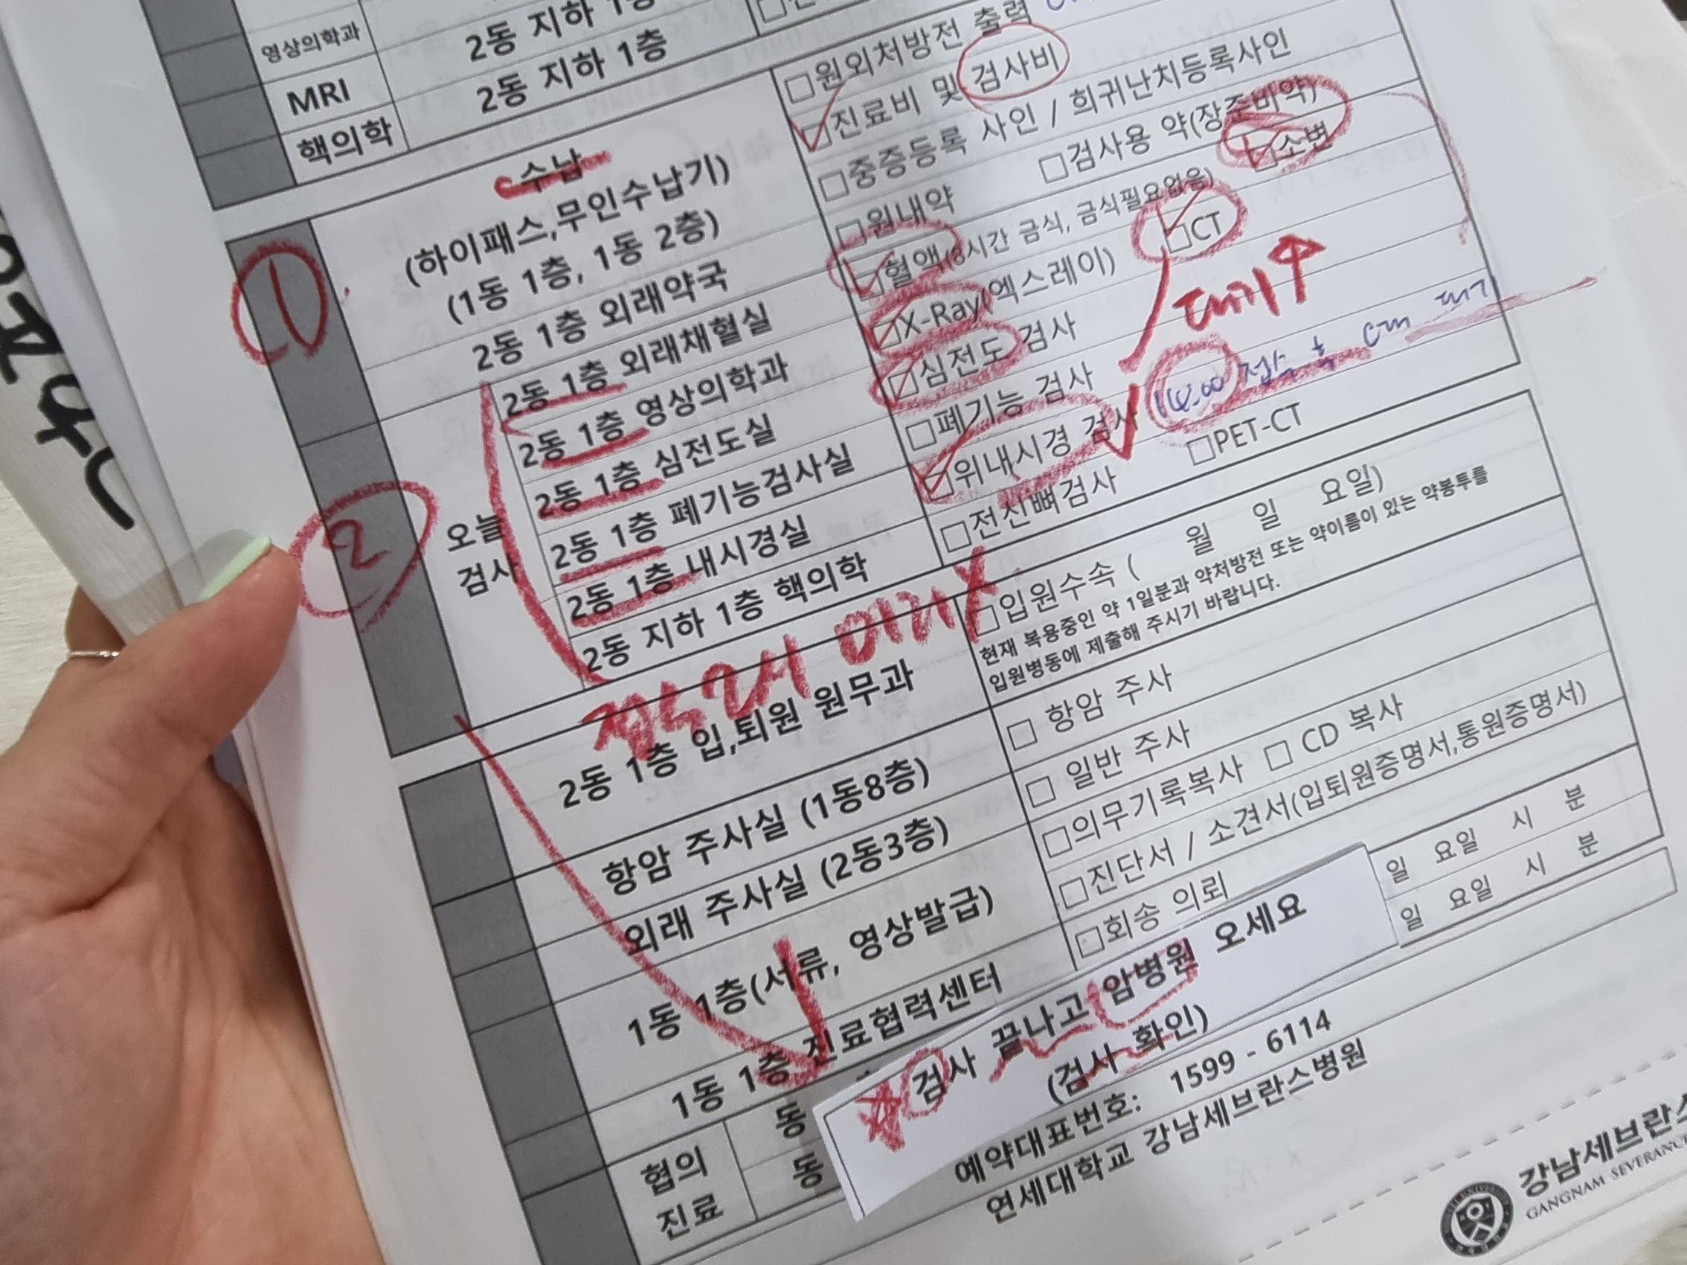 영상의학과
2동 지하 1층
MRI
2동 지하 1층
핵의학
□원외처방전 출력
□진료비 및 검사비
□중증등록 사인 / 희귀난치등록사인
수납
(하이패스,무인수납기)
(1동 1층, 1동 2층)
①
2동 1층 외래약국
□원내약
□검사용 약(장준비약)
2동 1층 외래채혈실
□혈액(8시간 금식, 금식필요없음)
□소변
2동 1층 영상의학과
□X-Ray(엑스레이)
□CT
대기↑
2동 1층 심전도실
□심전도 검사
2동 1층 폐기능검사실
□폐기능 검사
②
오늘
검사
2동 1층 내시경실
□위내시경 검사
접수 후
대기
2동 지하 1층 핵의학
□전신뼈검사
□PET-CT
접수 2시 이미지
2동 1층 입,퇴원 원무과
□입원수속 ( 월 일 요일)
현재 복용중인 약 1일분과 약처방전 또는 약이름이 있는 약봉투를
입원병동에 제출해 주시기 바랍니다.
항암 주사실 (1동8층)
□ 항암 주사
외래 주사실 (2동3층)
□ 일반 주사
1동 1층(서류, 영상발급)
□의무기록복사 □ CD 복사
□진단서 / 소견서(입퇴원증명서,통원증명서)
1동 1층 진료협력센터
□회송 의뢰
협의
진료
동
일 요일 시 분
동
일 요일 시 분
검사 끝나고 암병원 오세요
(검사 확인)
예약대표번호: 1599 - 6114
연세대학교 강남세브란스병원
강남세브란스
GANGNAM SEVERANCE